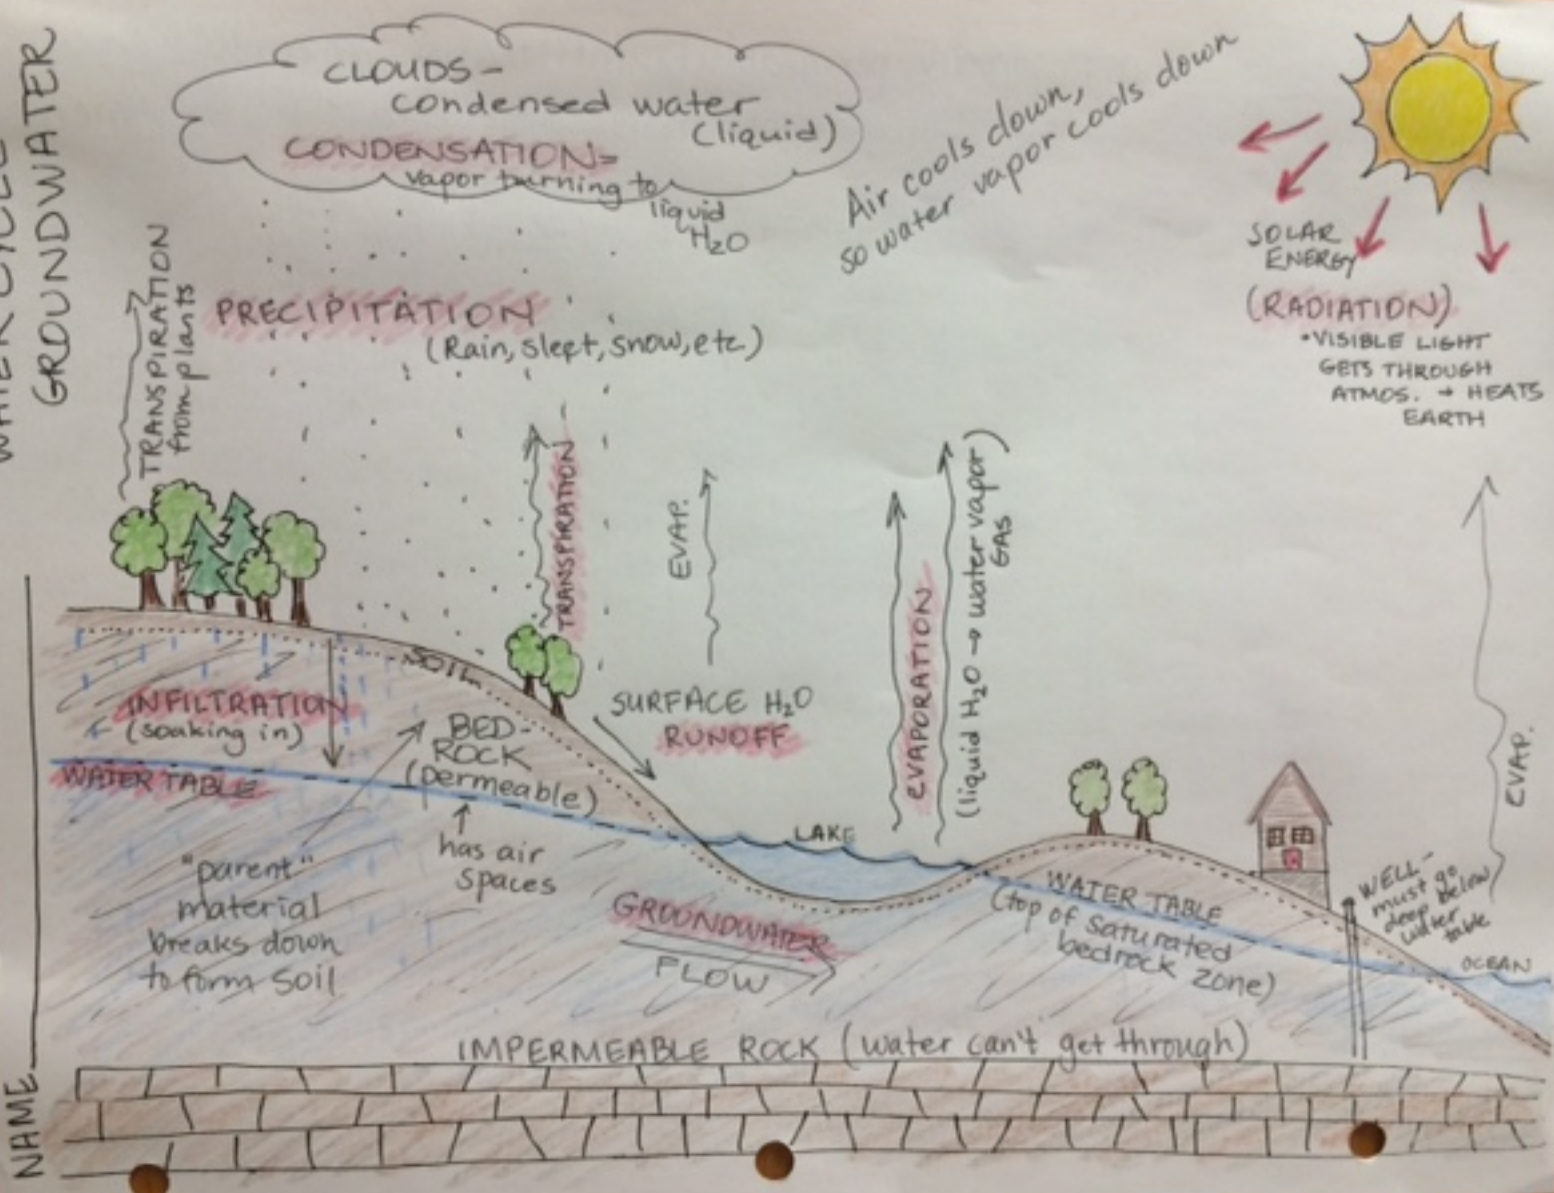 WATER CYCLE
GROUNDWATER
CLOUDS-
condensed water
(liquid)
CONDENSATION=
vapor turning to
liquid
H2O
Air cools down,
so water vapor cools down
SOLAR
ENERGY
(RADIATION)
•VISIBLE LIGHT
GETS THROUGH
ATMOS. → HEATS
EARTH
TRANSPIRATION
from plants
PRECIPITATION
(Rain, sleet, snow, etc.)
TRANSPIRATION
EVAP.
EVAPORATION
(liquid H2O → water vapor)
GAS
EVAP.
SOIL
INFILTRATION
(soaking in)
BED-
ROCK
(permeable)
SURFACE H2O
RUNOFF
WATER TABLE
has air
spaces
"parent"
material
breaks down
to form soil
LAKE
GROUNDWATER
FLOW
WATER TABLE
(top of saturated
bedrock zone)
WELL-
must go
deep below
water
table
OCEAN
IMPERMEABLE ROCK (water can't get through)
NAME